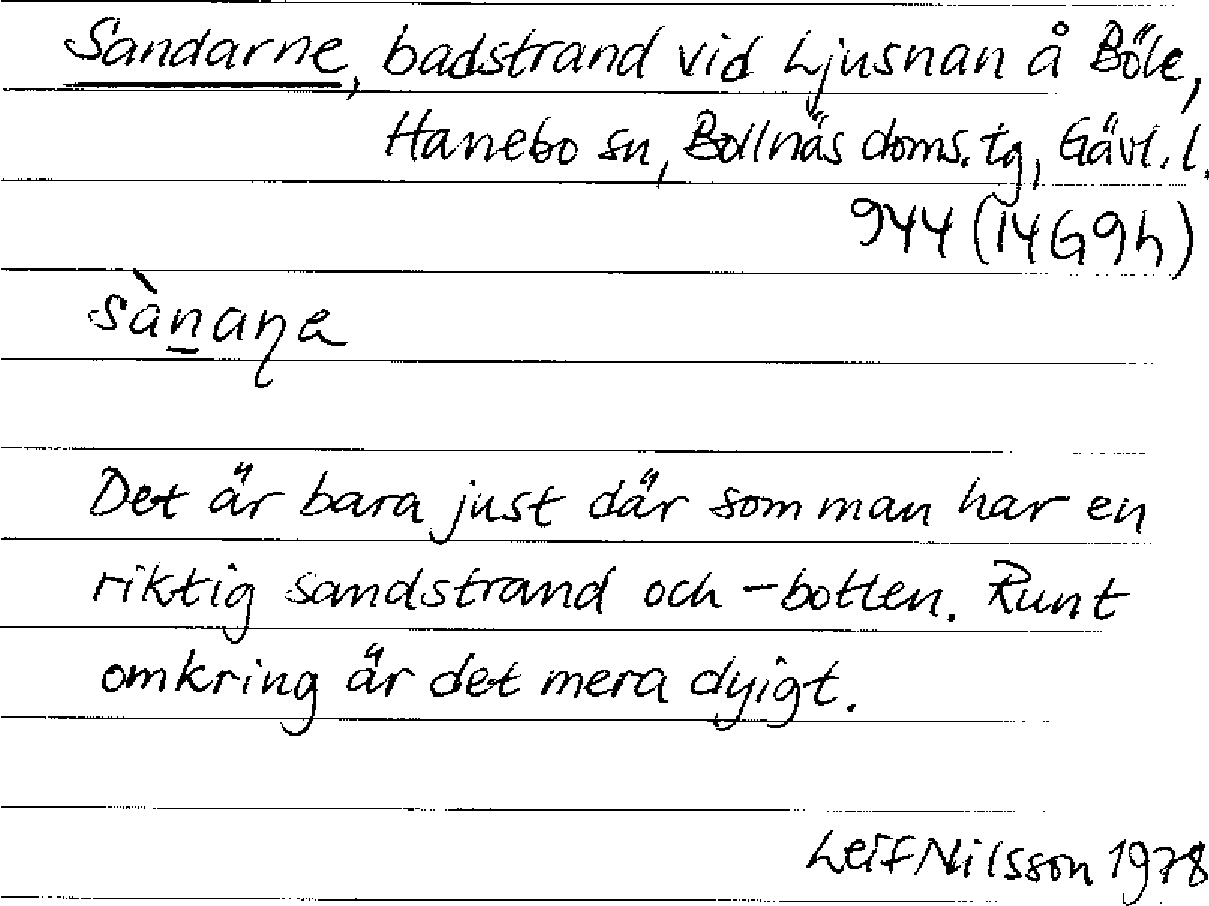 Sandarne, badstrand vid Ljusnan å Böle,
Hanebo sn, Bollnäs doms. tg, Gävl. l.
944 (14G9h)
sàn̲aɳa
Det är bara just där som man har en
riktig sandstrand och -botten. Runt
omkring är det mera dyigt.
Leif Nilsson 1978